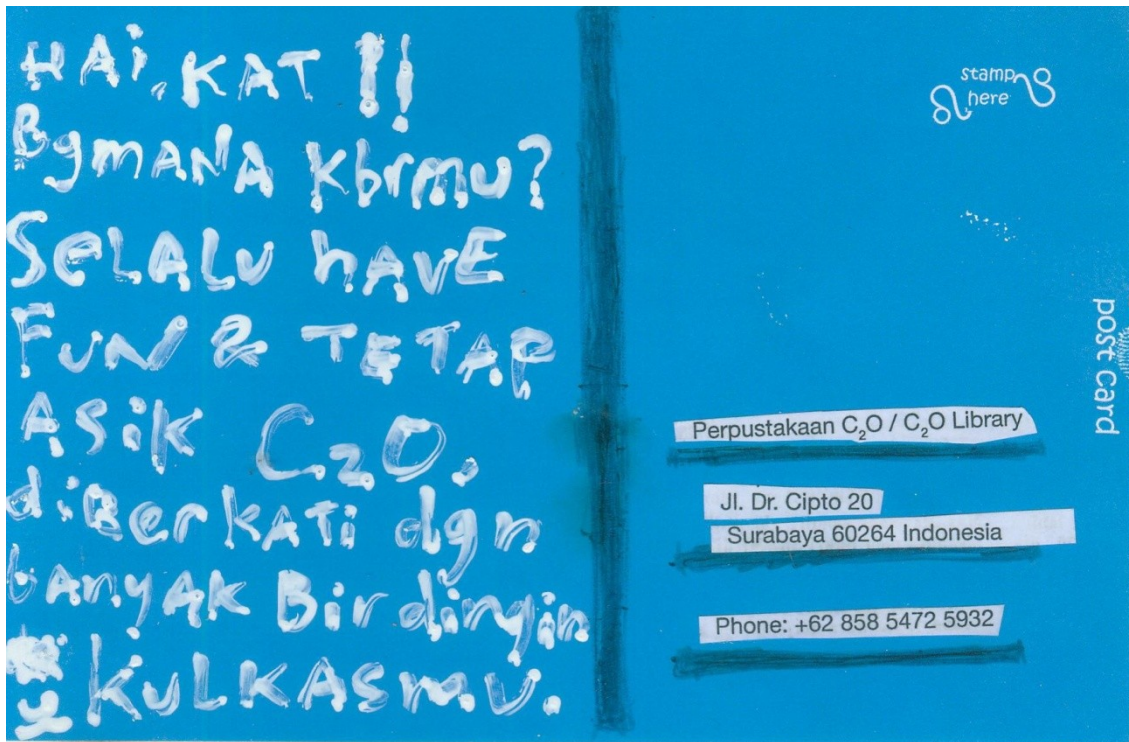 HAi, KAT !!
BgmANA Kbrmu?
SeLALu hAVE
FuN & TETAP
ASiK C2O.
diBerkATi dgn
bAnyAk Bir dingin
KULKASmu.
stamp
here
post card
Perpustakaan C₂O / C₂O Library
Jl. Dr. Cipto 20
Surabaya 60264 Indonesia
Phone: +62 858 5472 5932